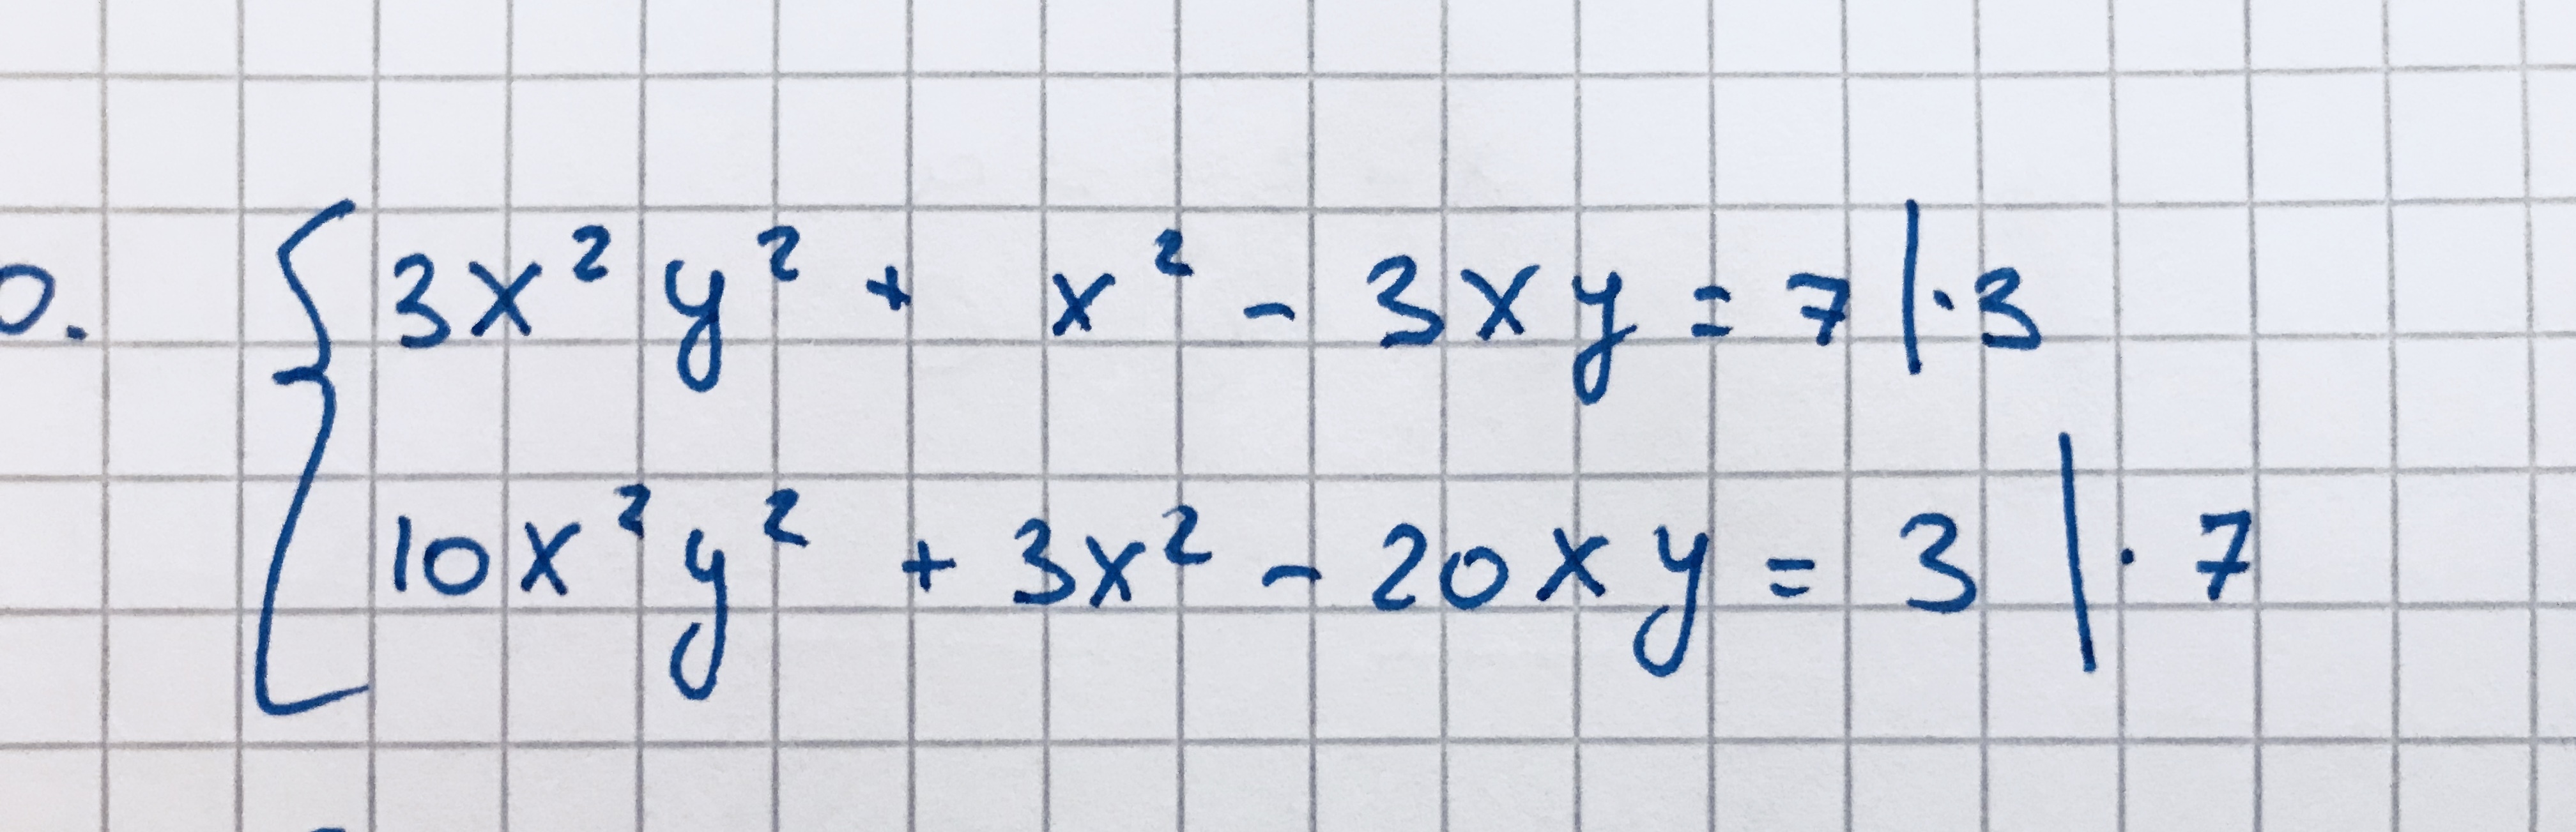 0. { 3x² y² + x² - 3xy = 7 | · 3
10x² y² + 3x² - 20xy = 3 | · 7